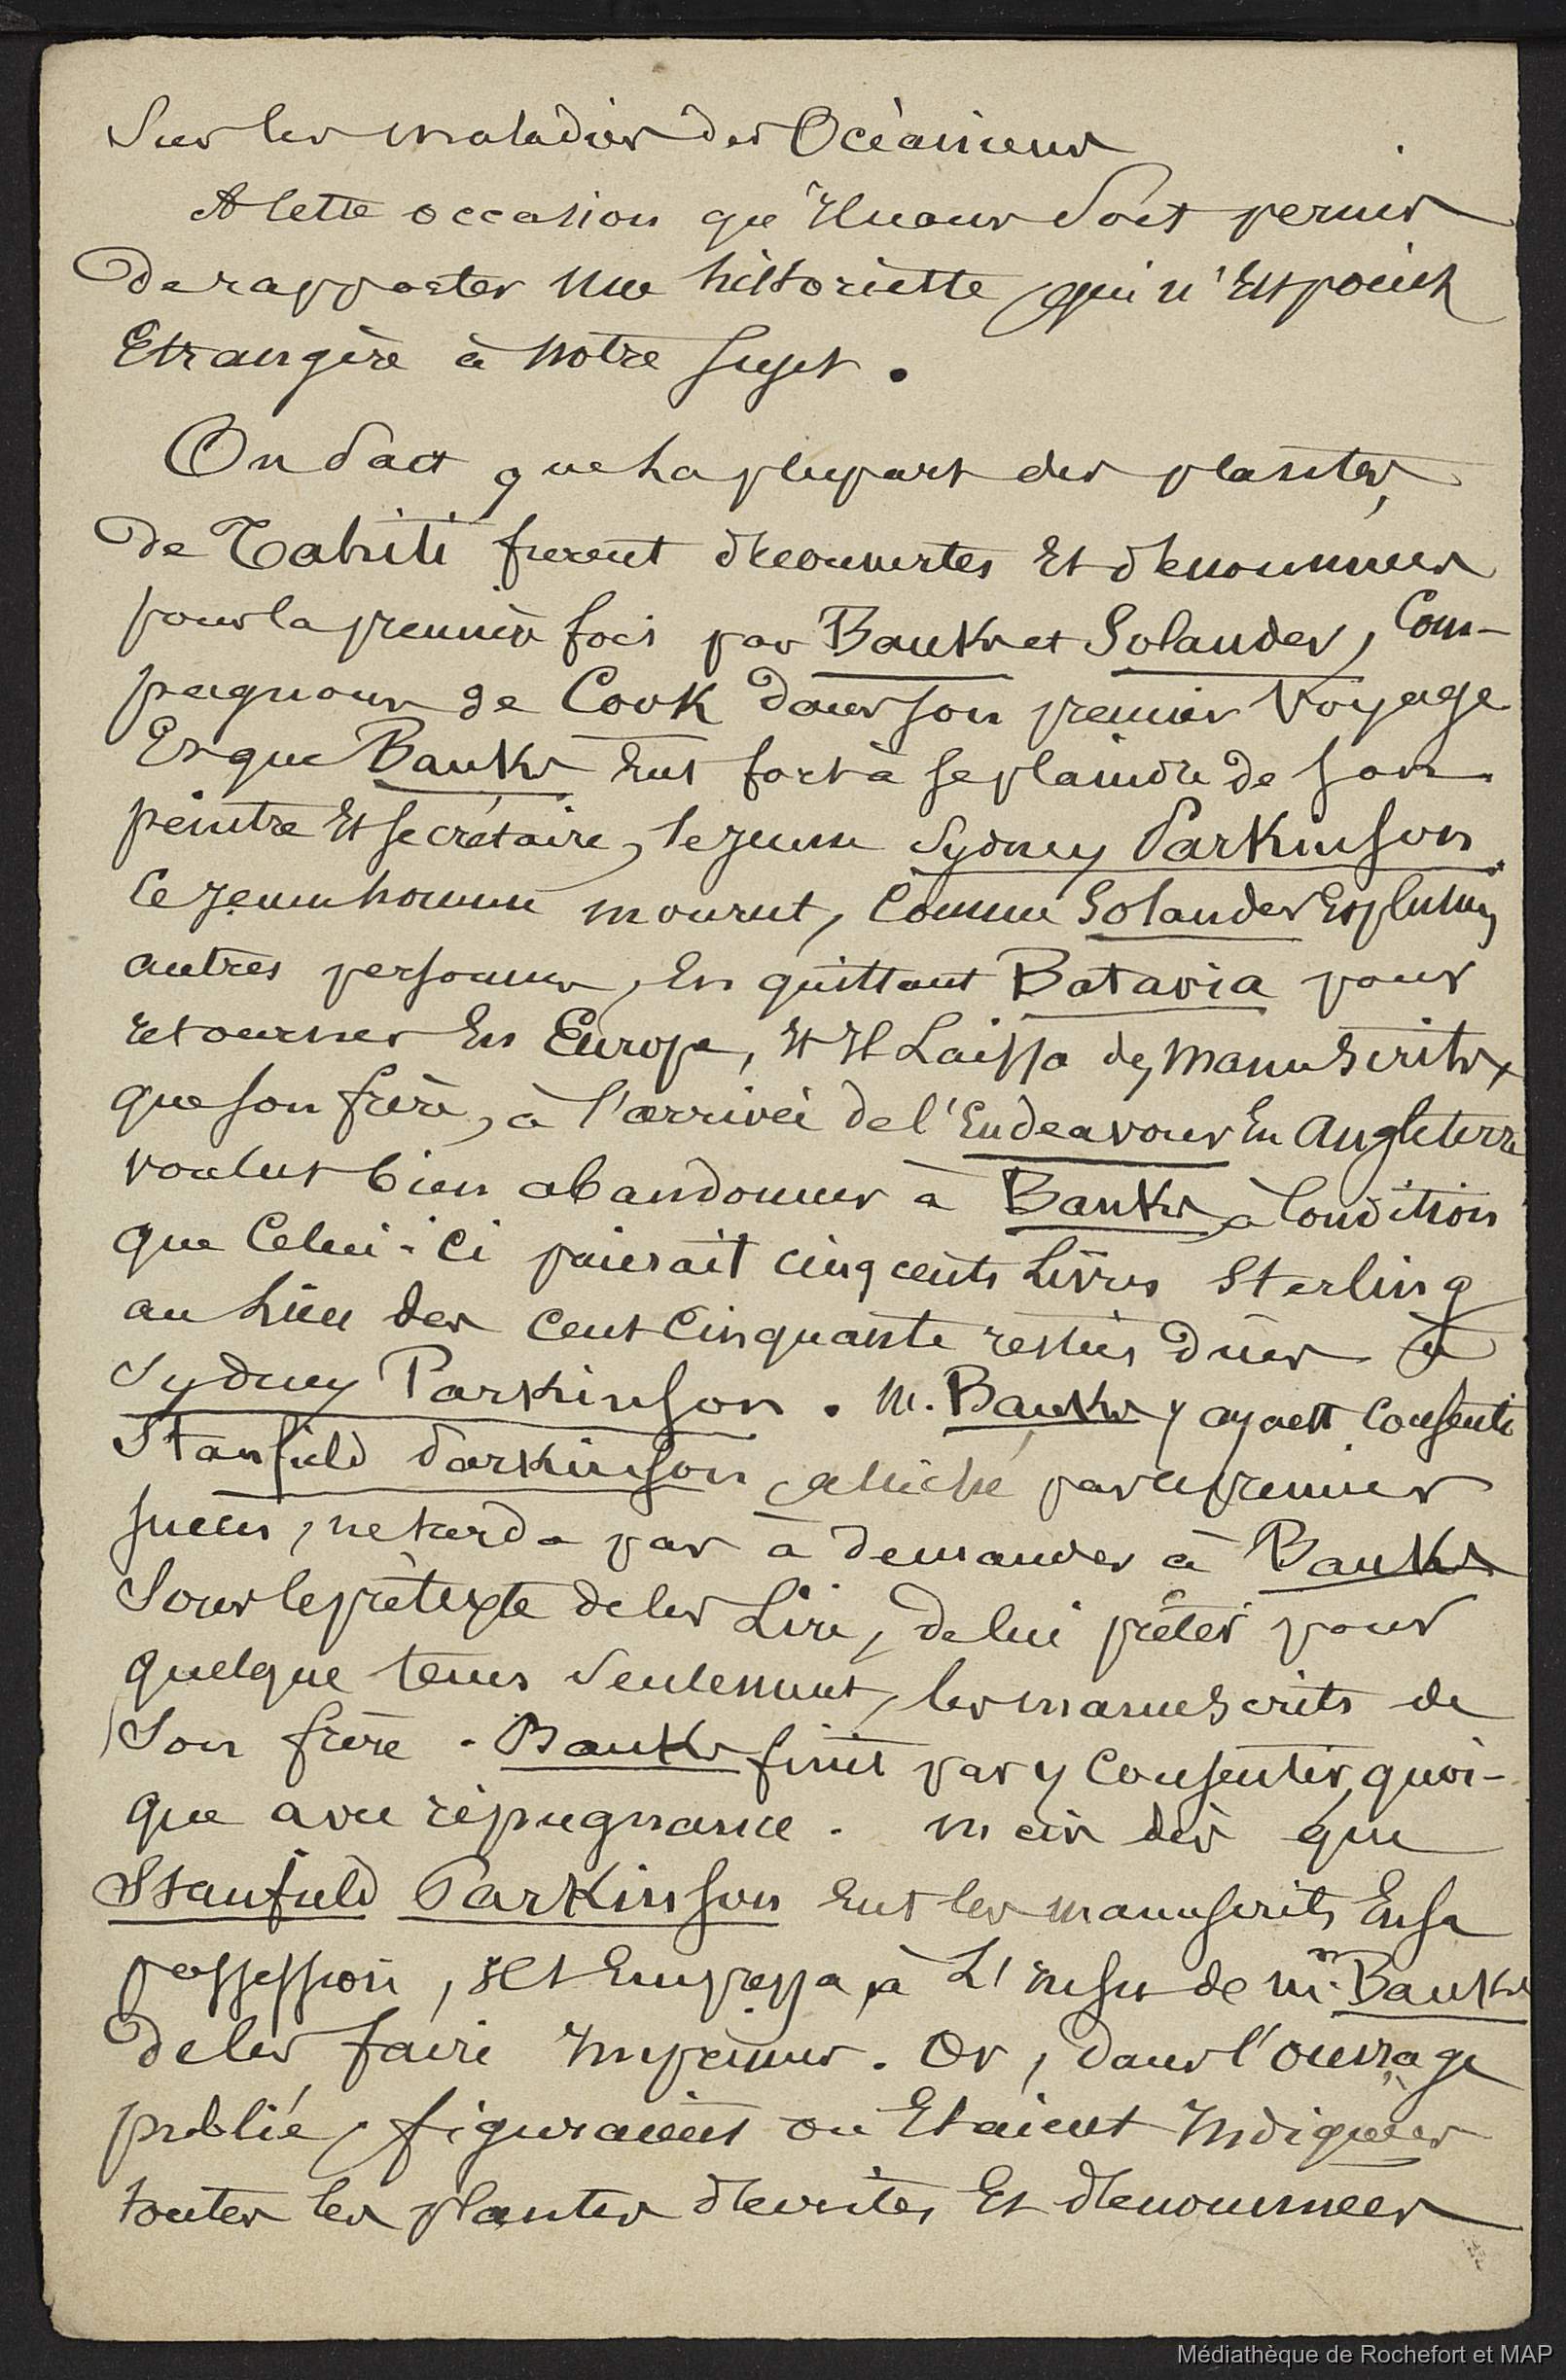 Sur les maladies des Océaniens
A cette occasion qu'il nous soit permis
de rapporter une historiette qui n'est point
Etrangère à notre sujet.
On sait que la plupart des plantes,
de Tahiti furent découvertes et dénommées
pour la première fois par Banks et Solander, Com-
pagnons de Cook dans son premier voyage
Et que Banks eut fort à se plaindre de son
peintre et secrétaire, le jeune Sydney Parkinson.
Ce jeune homme mourut, comme Solander et plusieurs
autres personnes, en quittant Batavia pour
retourner en Europe, et il laissa des manuscrits,
que son frère, à l'arrivée de l'Endeavour en Angleterre
voulut bien abandonner à Banks à condition
que celui-ci paierait cinq cents livres sterling
au lieu des cent cinquante restées dues à
Sydney Parkinson. M. Banks y ayant consenti
Stanfield Parkinson alléché par ce premier
succès, ne tarda pas à demander à Banks
sous le prétexte de les lire, de lui prêter pour
quelque tems seulement, les manuscrits de
son frère. Banks finit par y consentir, quoi-
que avec répugnance. mais dès que
Stanfield Parkinson eut les manuscrits en sa
possession, il s'empressa, à l'insu de M. Banks
de les faire imprimer. Or, dans l'ouvrage
publié, figuraient ou étaient indiquées
toutes les plantes décrites et dénommées
Médiathèque de Rochefort et MAP